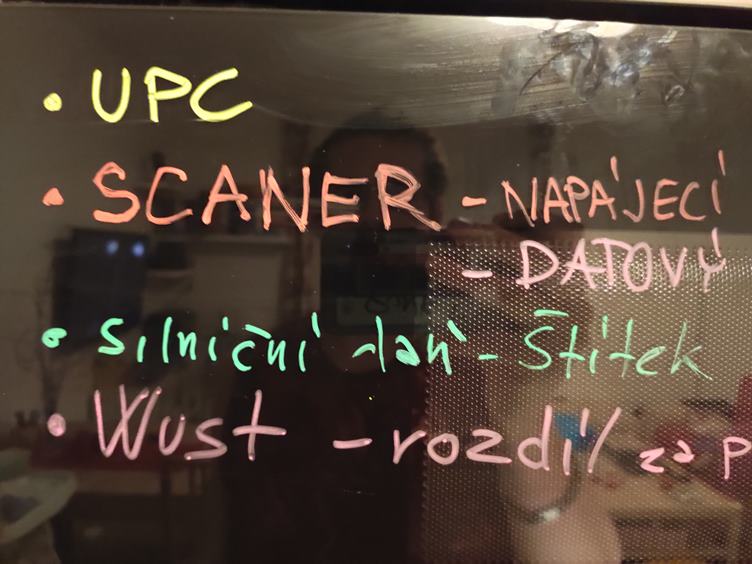 • UPC
• SCANER - NAPÁJECÍ
- DATOVÝ
• Silniční daň - Štítek
• Wust - rozdíl za p